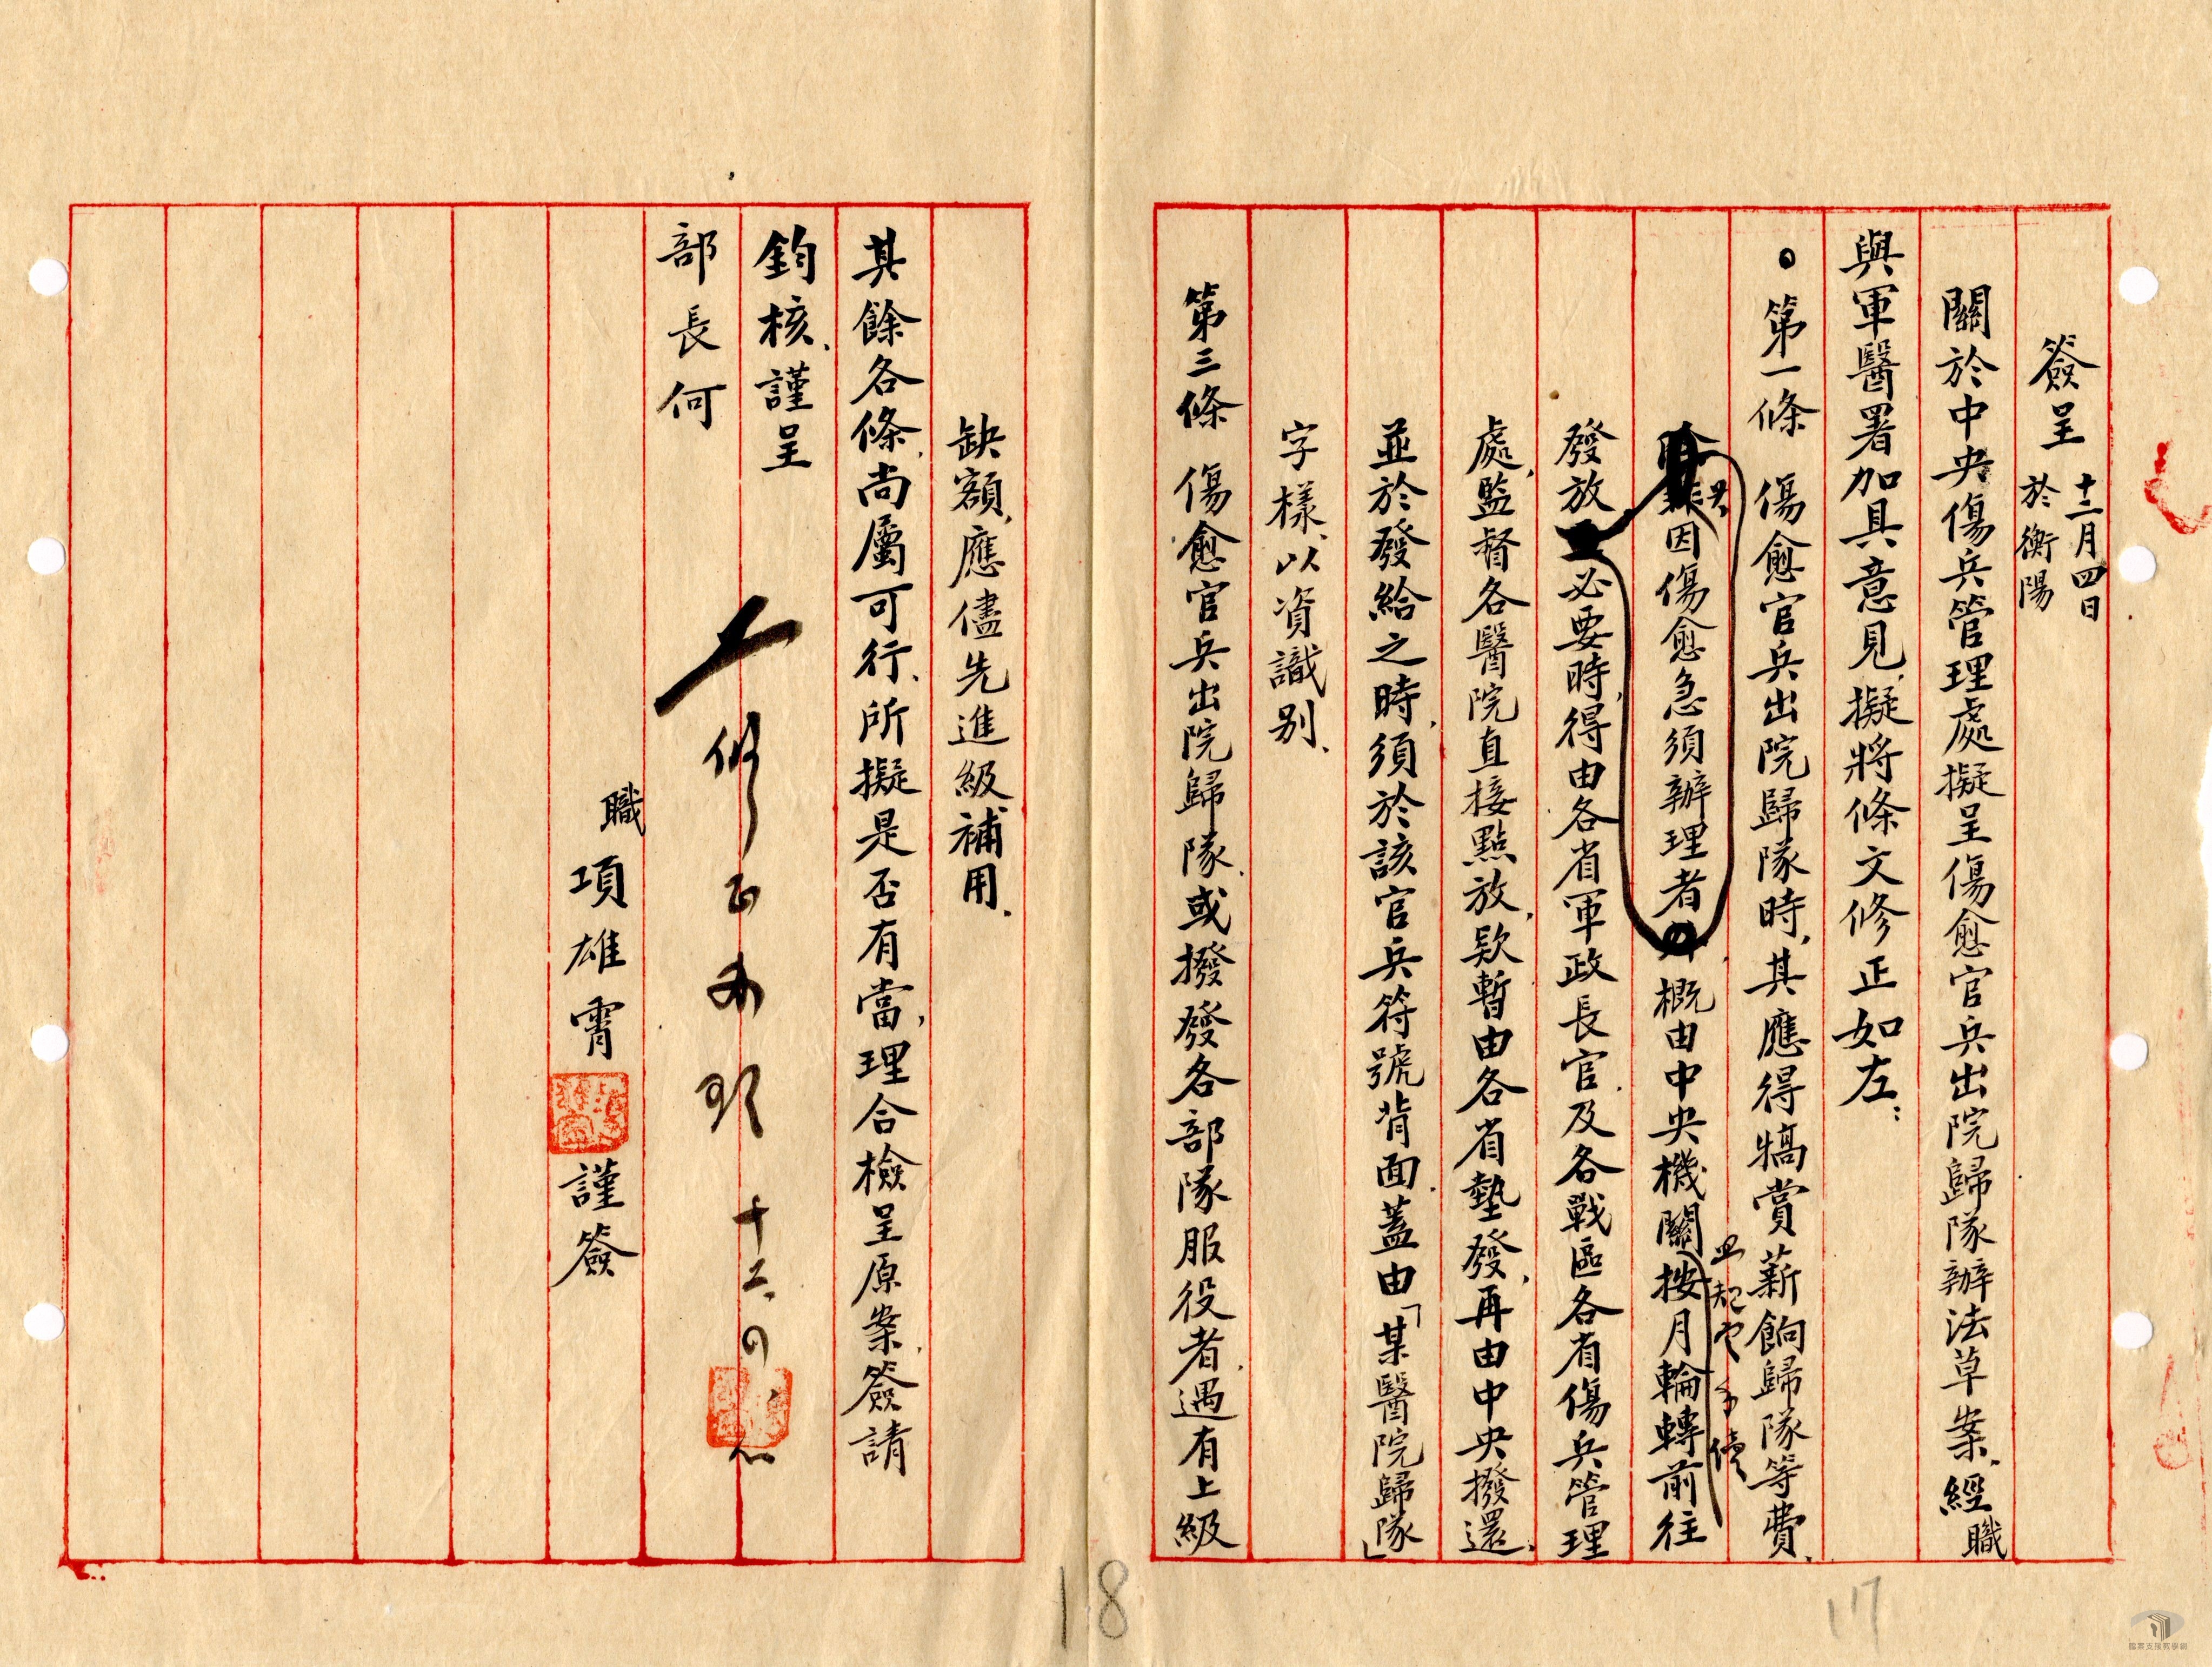 簽呈 十二月四日
於衡陽
關於中央傷兵管理處擬呈傷愈官兵出院歸隊辦法草案、經職
與軍醫署加具意見、擬將條文修正如左：
第一條 傷愈官兵出院歸隊時、其應得犒賞薪餉歸隊等費、
因傷愈急須辦理者 概由中央機關按月輪轉前往
且規定手續
發放 必要時、得由各省軍政長官、及各戰區各省傷兵管理
處、監督各醫院直接點放、欵暫由各省墊發、再由中央撥還、
並於發給之時、須於該官兵符號背面、蓋由「某醫院歸隊」
字樣、以資識别、
第三條 傷愈官兵出院歸隊、或撥發各部隊服役者、遇有上級
缺額、應儘先進級補用、
其餘各條、尚屬可行、所擬是否有當、理合檢呈原案、簽請
鈞核、謹呈
部長何
修正 十二、
職項雄霄 謹簽
18
17
國家文檔教學網